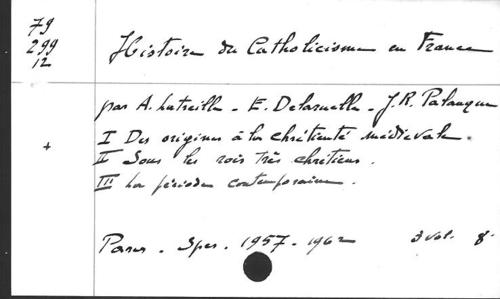 79
299
12
Histoire du Catholicisme en France
par A. Latreille - E. Delaruelle - J.R. Palanque
I Des origines à la chrétienté médiévale.
+
II Sous les rois très chrétiens.
III La période contemporaine.
Paris. Spes. 1957-1962 3 vol. 8°